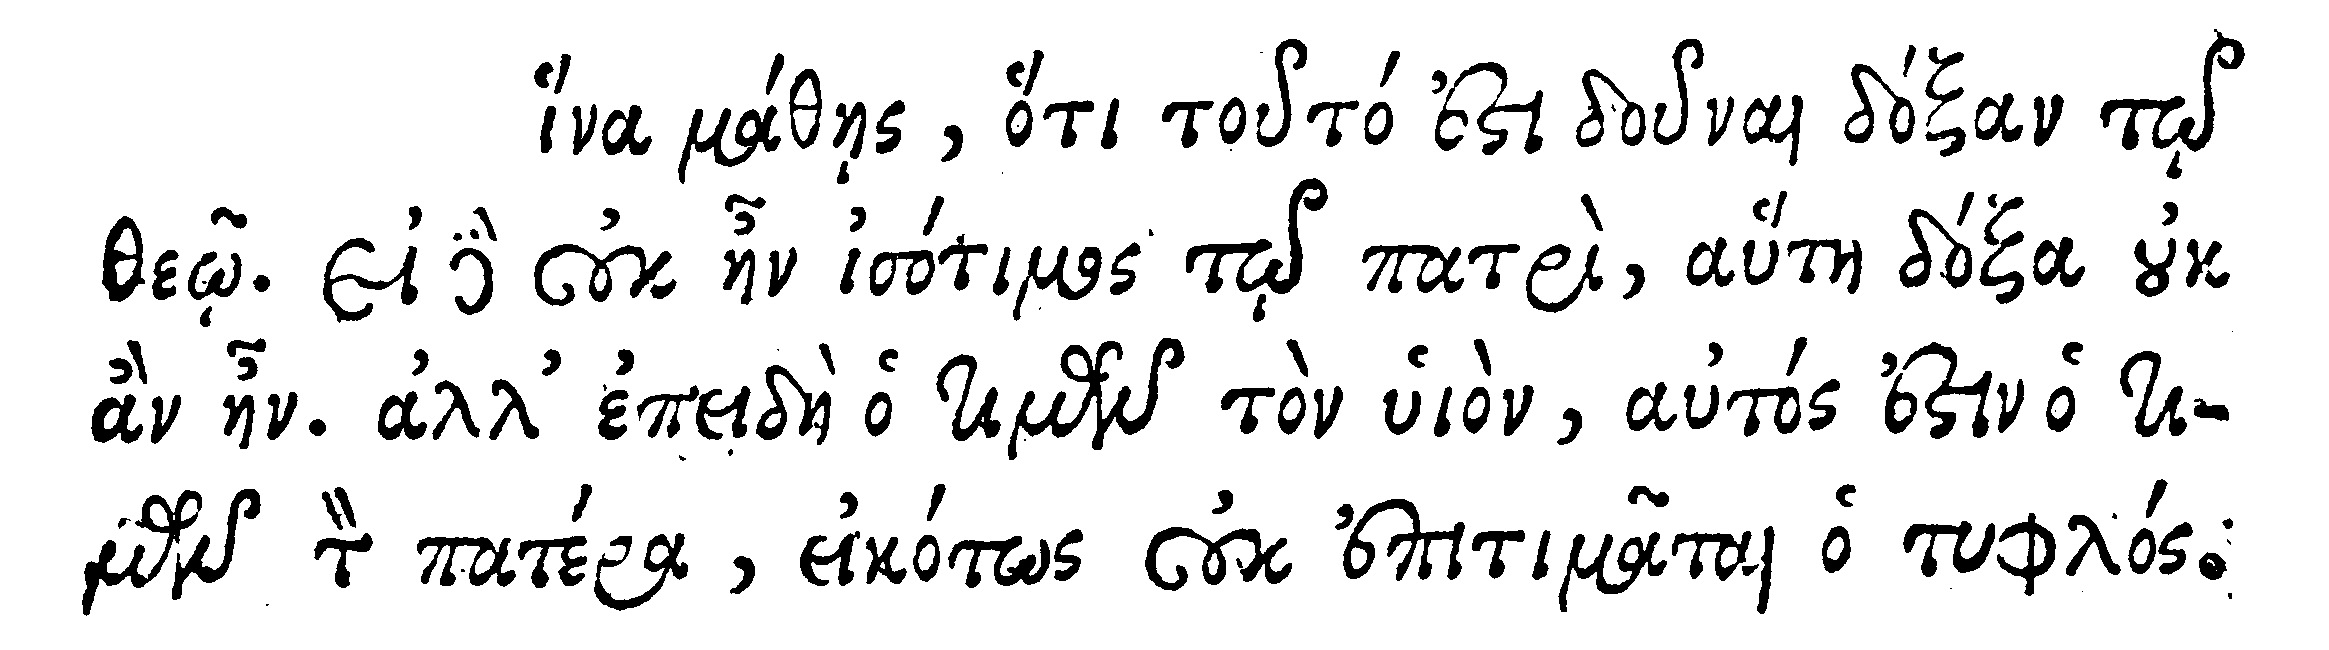 ἵνα μάθῃς, ὅτι τοῦτό ἐστι δοῦναι δόξαν τῷ
θεῷ. εἰ δὲ οὐκ ἦν ἰσότιμος τῷ πατρὶ, αὕτη δόξα οὐκ
ἂν ἦν. ἀλλ' ἐπειδὴ ὁ τιμῶν τὸν υἱὸν, αὐτός ἐστιν ὁ τι-
μῶν τὸν πατέρα, εἰκότως οὐκ ἐπιτιμᾶται ὁ τυφλός.